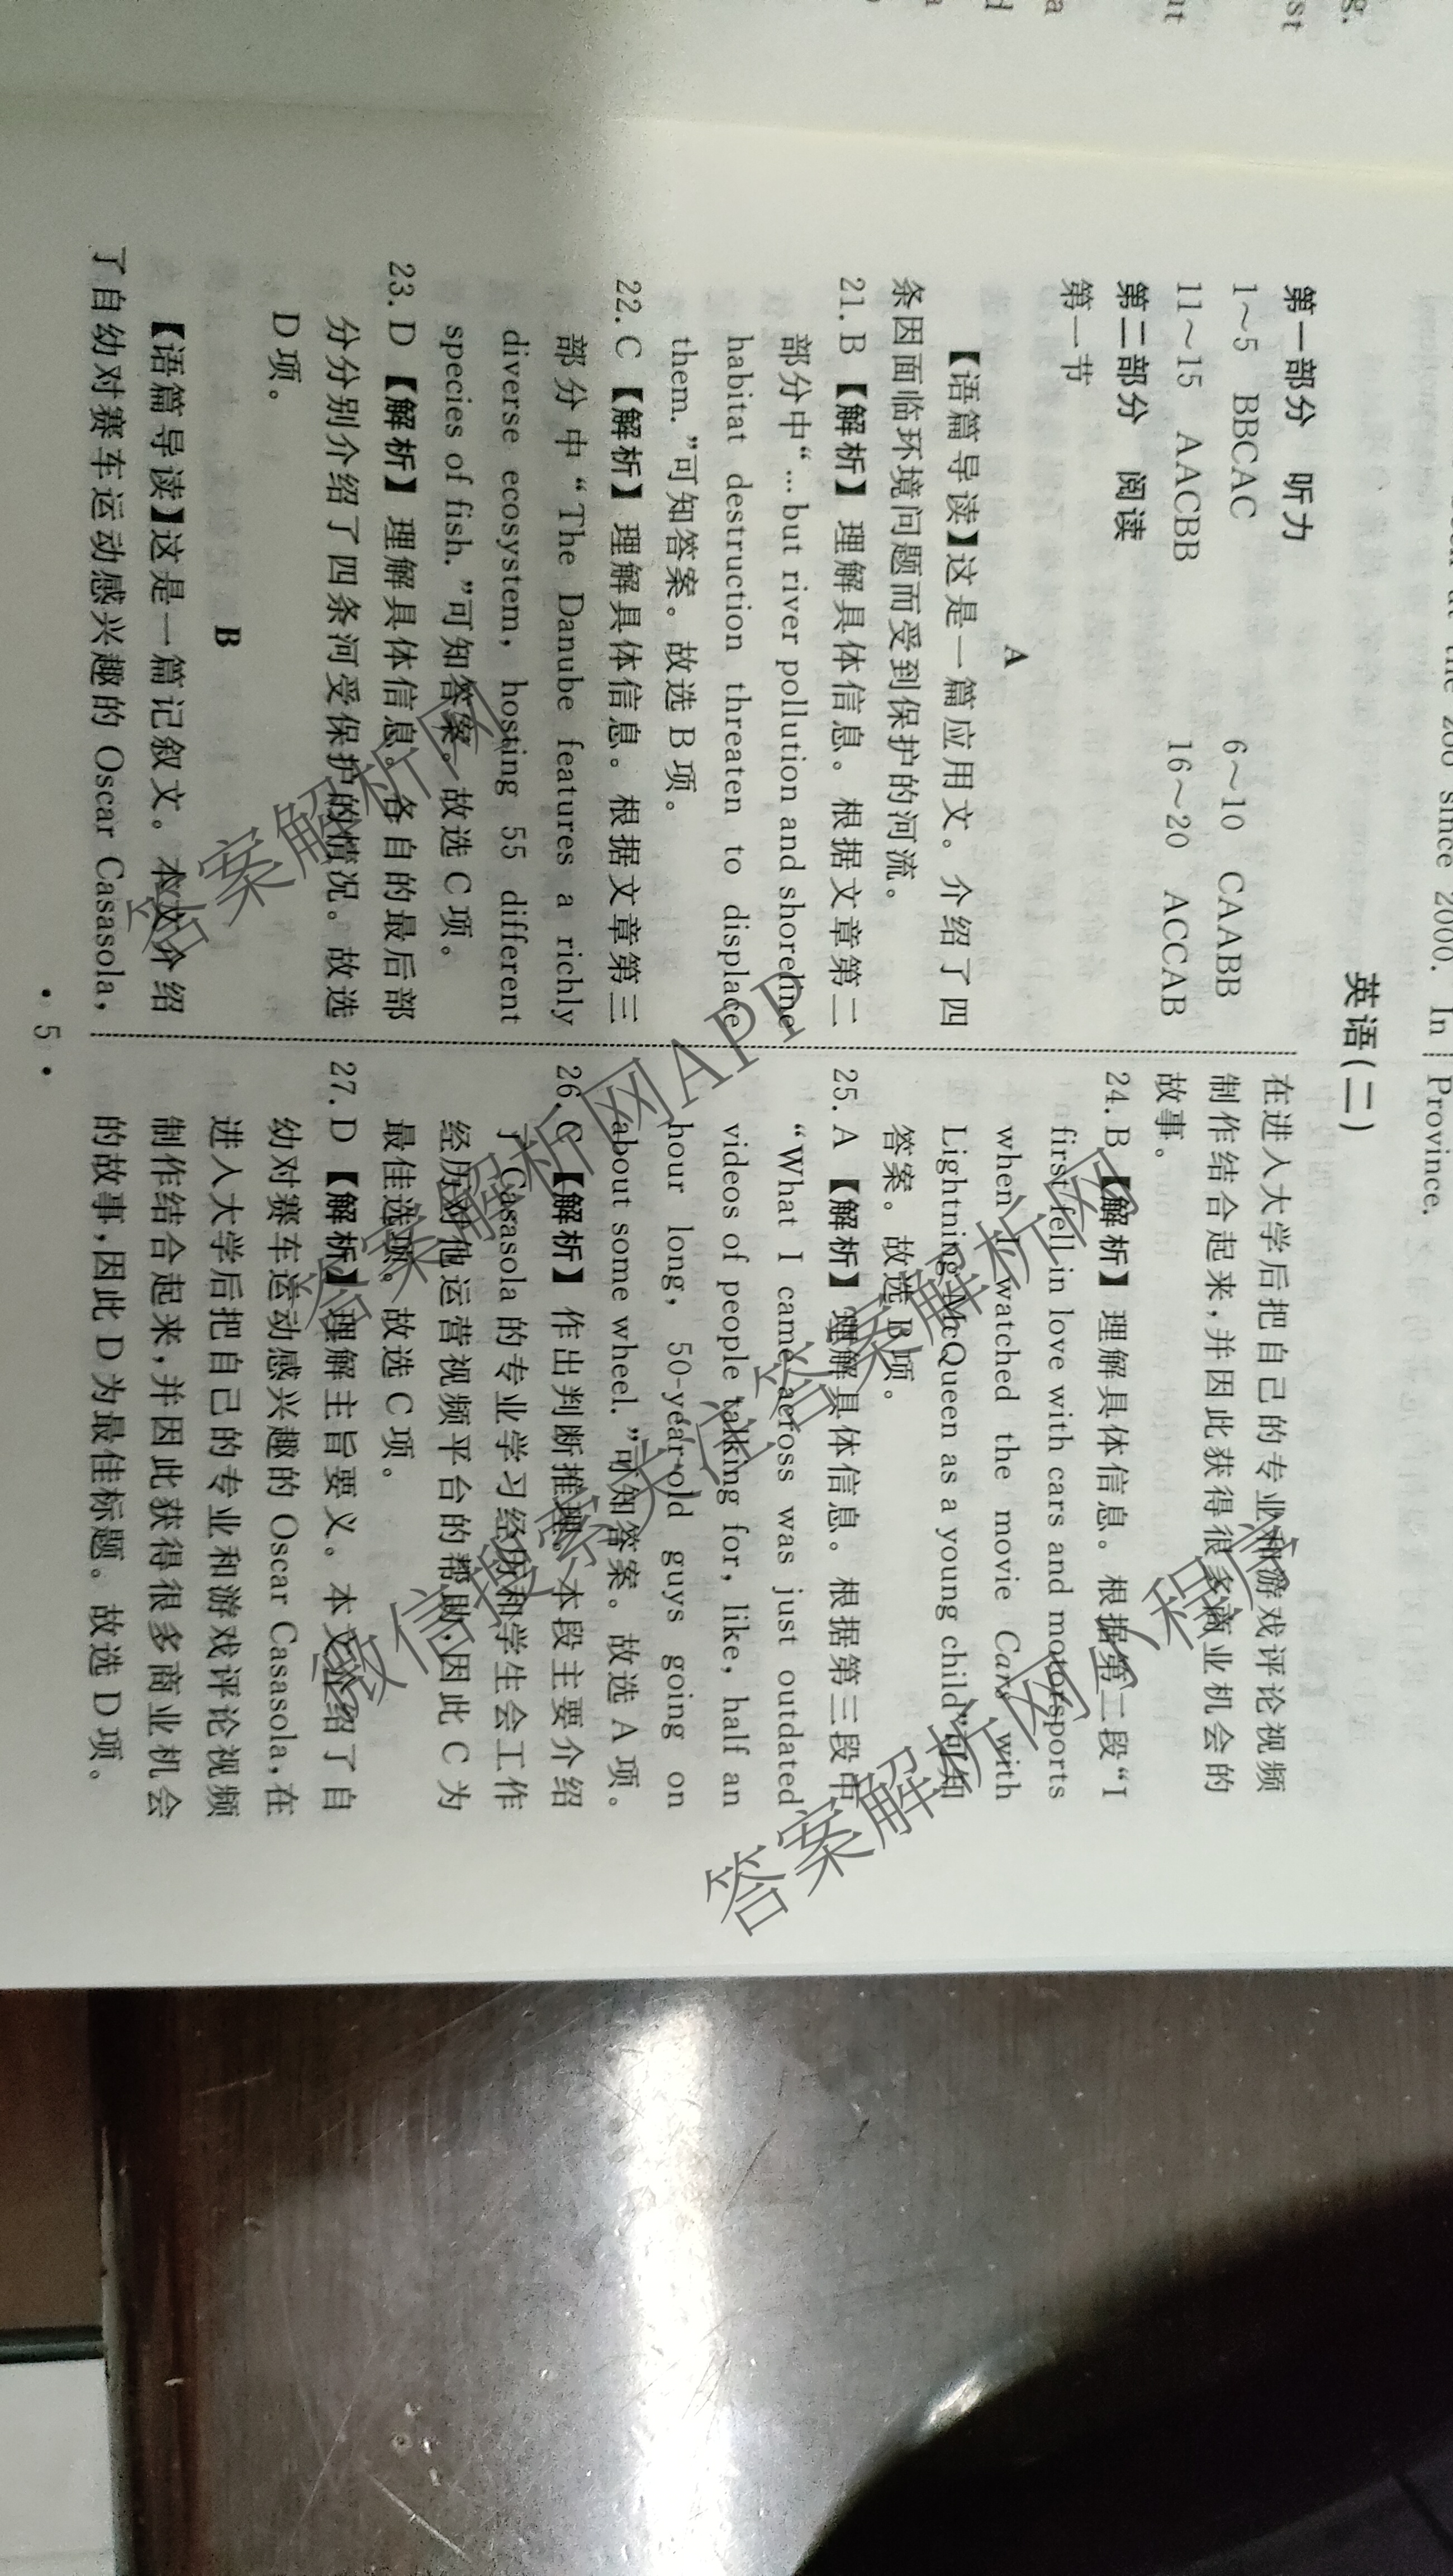 the zoo since 2000. In
Province.
英语(二)
第一部分 听力
1~5 BBCAC 6~10 CAABB
11~15 AACBB 16~20 ACCAB
第二部分 阅读
第一节
A
【语篇导读】这是一篇应用文。介绍了四
条因面临环境问题而受到保护的河流。
21. B 【解析】理解具体信息。根据文章第二
部分中“... but river pollution and shoreline
habitat destruction threaten to displace
them.”可知答案。故选 B 项。
22. C 【解析】理解具体信息。根据文章第三
部分中“The Danube features a richly
diverse ecosystem, hosting 55 different
species of fish.”可知答案。故选 C 项。
23. D 【解析】理解具体信息。各自的最后部
分分别介绍了四条河受保护的情况。故选
D 项。
B
【语篇导读】这是一篇记叙文。本文介绍
了自幼对赛车运动感兴趣的 Oscar Casasola,
在进入大学后把自己的专业和游戏评论视频
制作结合起来,并因此获得很多商业机会的
故事。
24. B 【解析】理解具体信息。根据第二段“I
first fell in love with cars and motorsports
when I watched the movie Cars with
Lightning McQueen as a young child”可知
答案。故选 B 项。
25. A 【解析】理解具体信息。根据第三段中
“What I came across was just outdated
videos of people talking for, like, half an
hour long, 50-year-old guys going on
about some wheel.”可知答案。故选 A 项。
26. C 【解析】作出判断推理。本段主要介绍
了 Casasola 的专业学习经历和学生会工作
经历对他运营视频平台的帮助,因此 C 为
最佳选项。故选 C 项。
27. D 【解析】理解主旨要义。本文介绍了自
幼对赛车运动感兴趣的 Oscar Casasola,在
进入大学后把自己的专业和游戏评论视频
制作结合起来,并因此获得很多商业机会
的故事,因此 D 为最佳标题。故选 D 项。
• 5 •
答案解析网
答案解析网APP
微信搜索关注答案解析网
答案解析网小程序